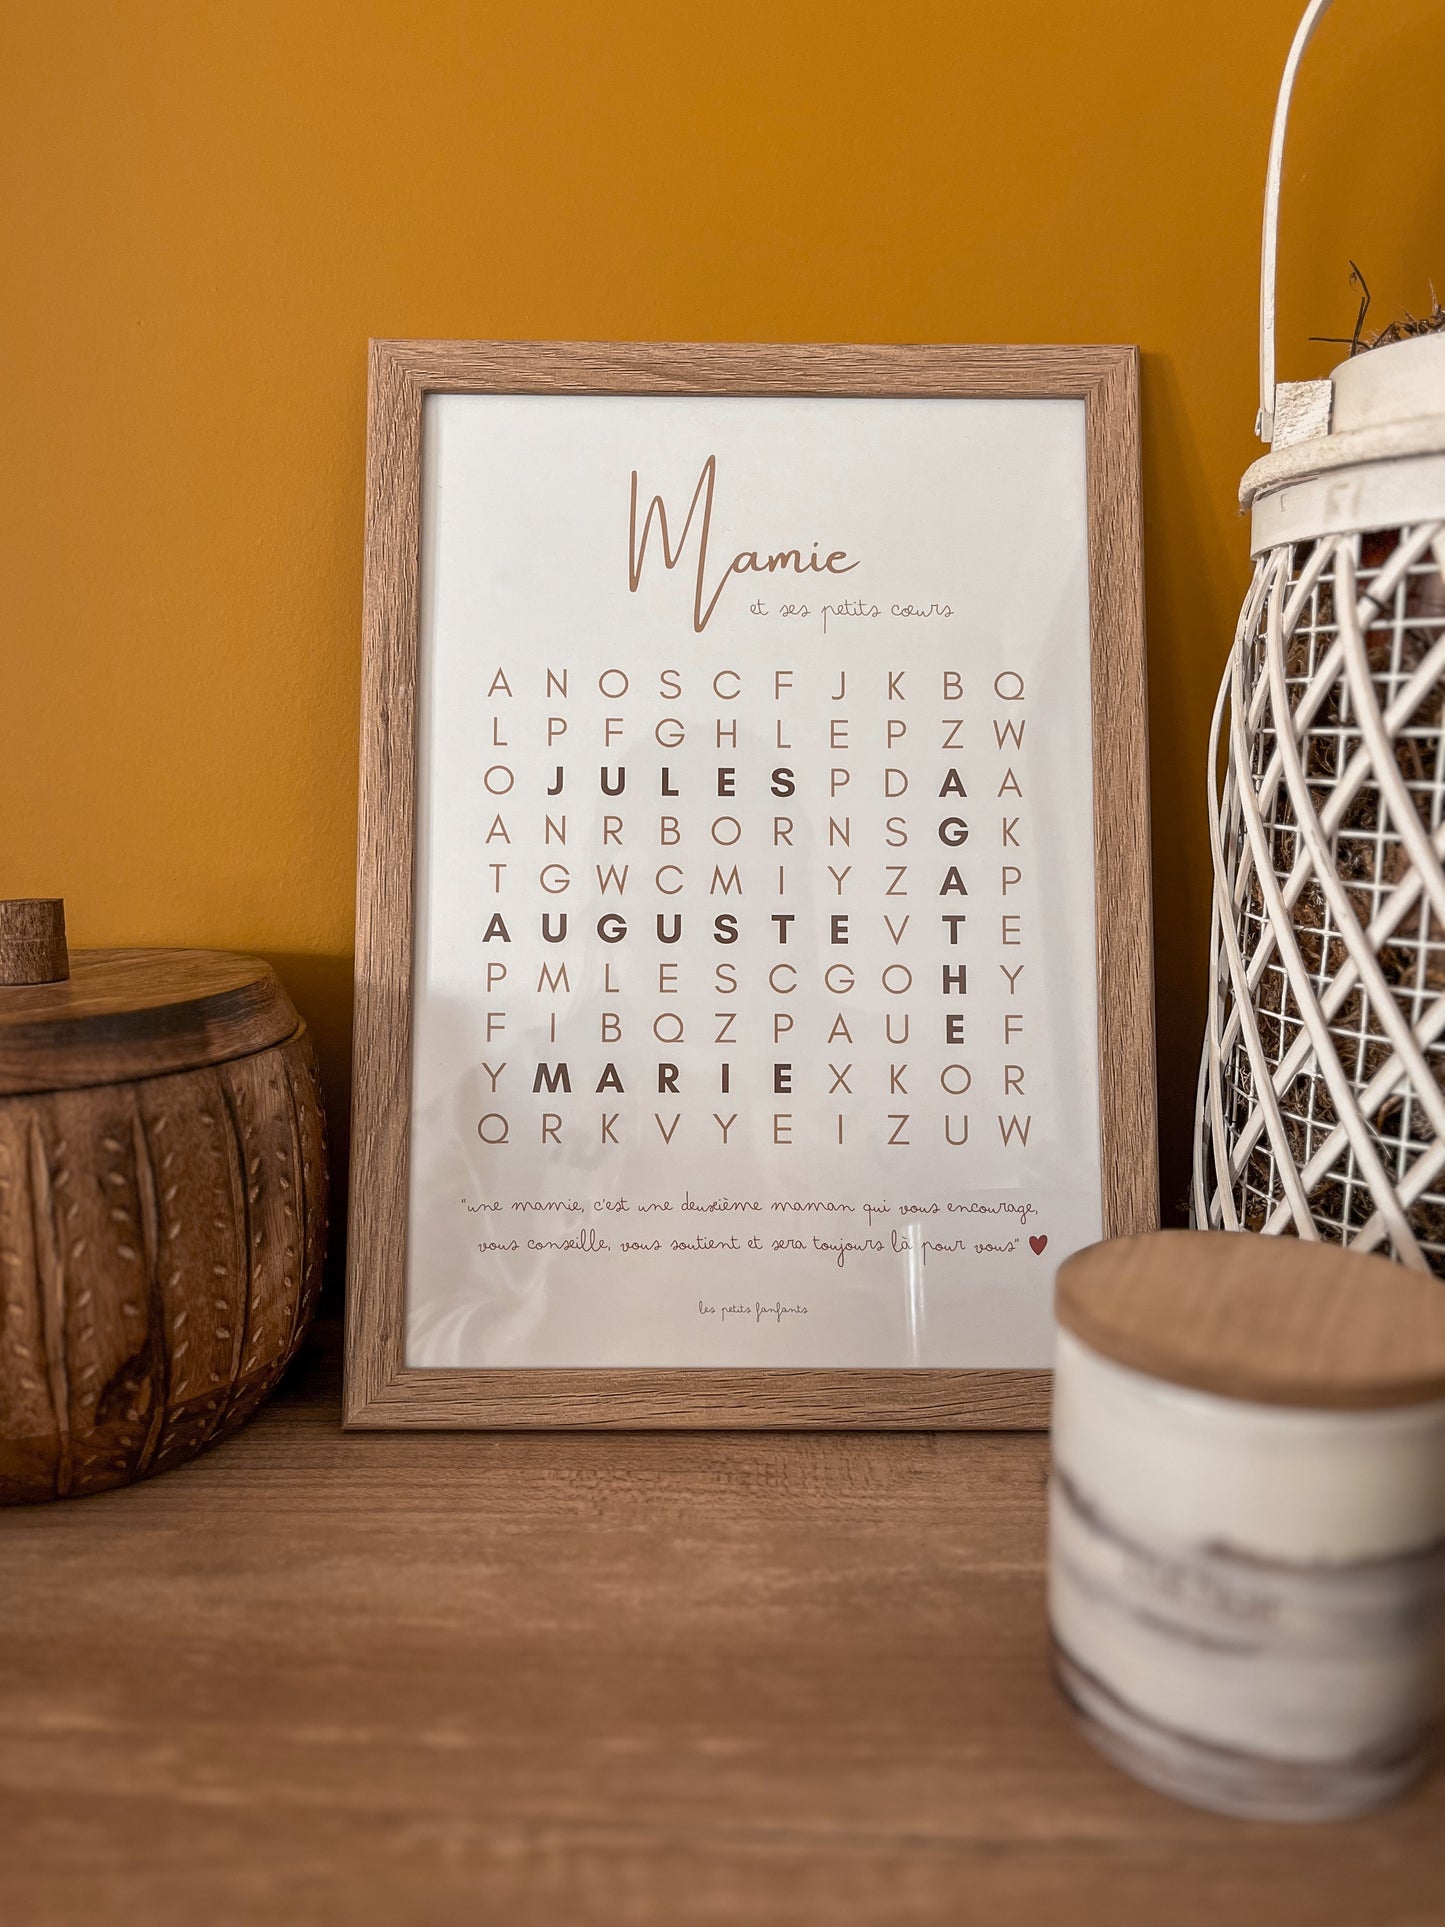 Mamie
et ses petits cœurs
A N O S C F J K B Q
L P F G H L E P Z W
O J U L E S P D A A
A N R B O R N S G K
T G W C M I Y Z A P
A U G U S T E V T E
P M L E S C G O H Y
F I B Q Z P A U E F
Y M A R I E X K O R
Q R K V Y E I Z U W
"une mamie, c'est une deuxième maman qui vous encourage,
vous conseille, vous soutient et sera toujours là pour vous" ♥
les petits fanfants